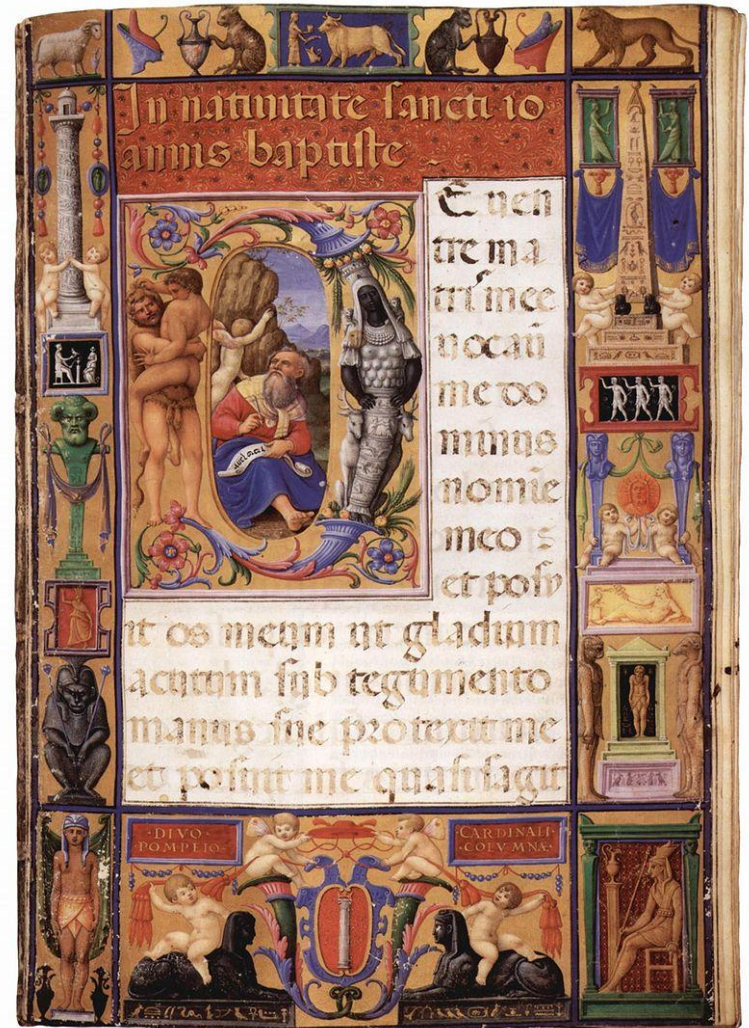 In natiuitate sancti io
annis baptiste
DE uen
tre ma
tris mee
uocaū
me do
minus
nomīe
meo :
et posu
it os meum ut gladium
acutum sub tegumento
manus sue protexit me
et posuit me quasi sagit
·DIVO·
POMPEIO·
CARDINALI·
·COLVMNÆ·